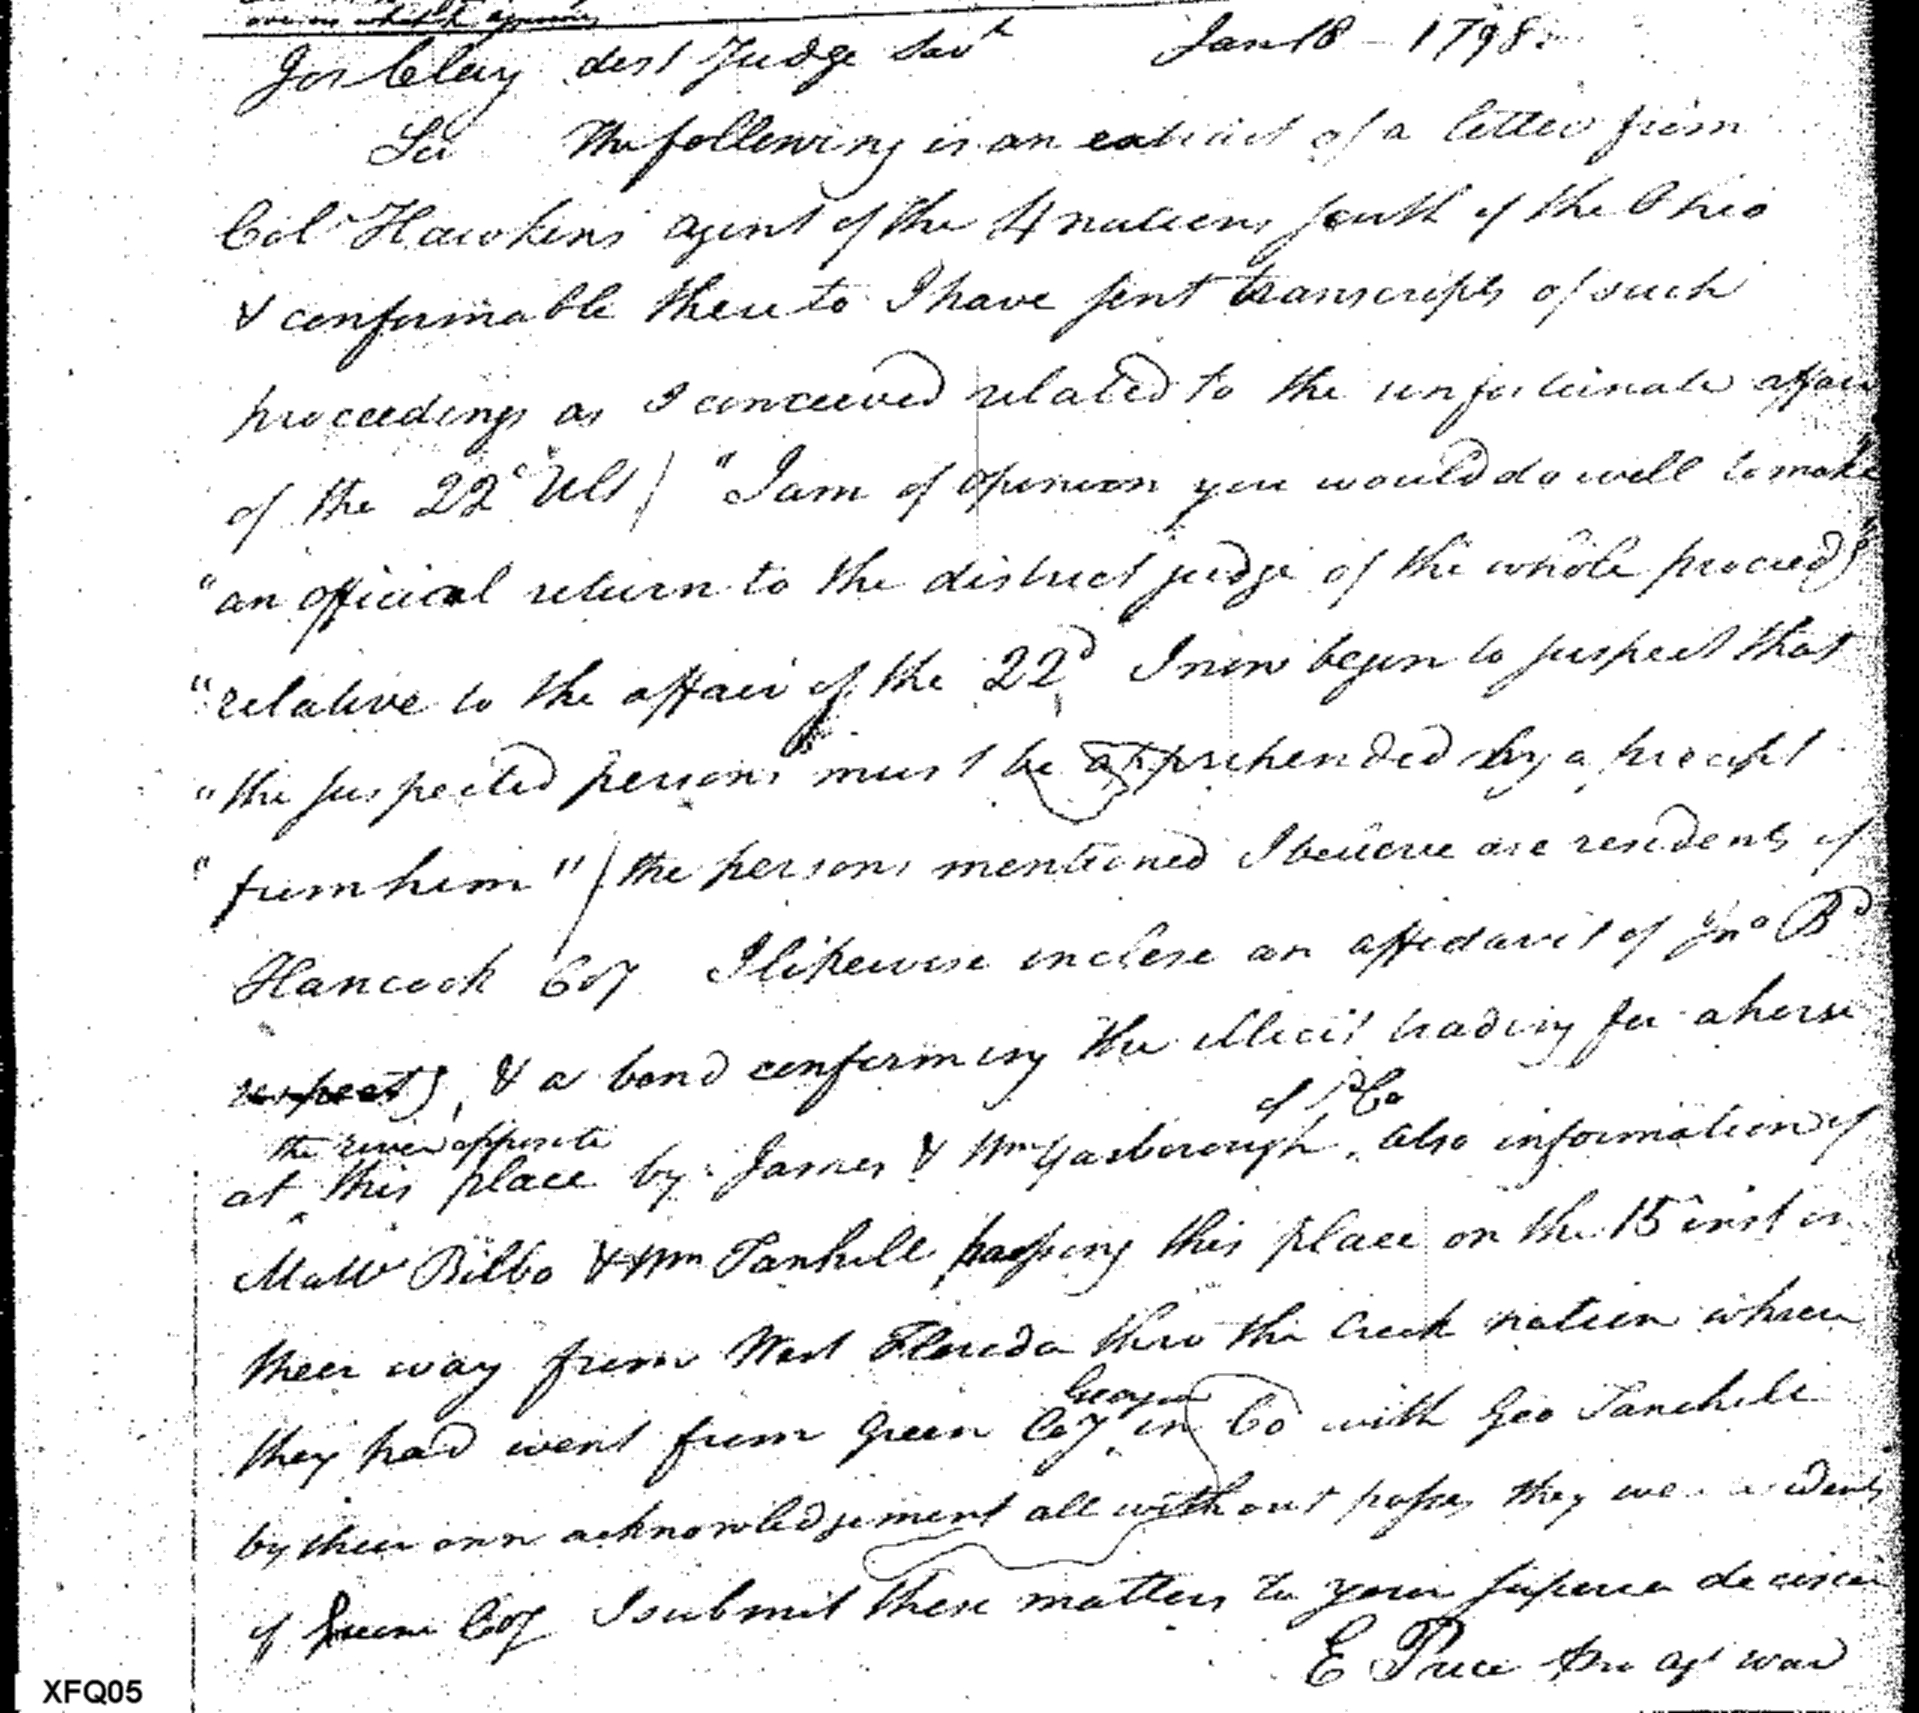 Jos Clay dist Judge Savh Jan 18 - 1798.
Sir The following is an extract of a letter from
Col Hawkins agent of the 4 nations south of the Ohio
& conformable there to I have sent transcripts of such
proceedings as I conceived related to the unfortunate affair
of the 22d Ult / "I am of opinion you would do well to make
"an official return to the district judge of the whole proceedgs
"relative to the affair of the 22d I now begin to suspect that
"the suspected persons must be apprehended by a precept
"from him" / the persons mentioned I believe are residents of
Hancock Coy I likewise inclose an affidavit of Jno Bd
respectg, & a bond confirming the illicit trading for a horse
the river opposite of sd Co
at this place by James & Wm Yasborough, also information of
Matw Bilbo & Wm Tanhill passing this place on the 15 inst in
their way from West Florida thro the Creek nation where
Georgia
they had went from Green Coy in Co with Geo Tanehill
by their own acknowledgement all without passes they were residents
of Greene Coy I submit these matters to your superior decision
E Price agt war
XFQ05